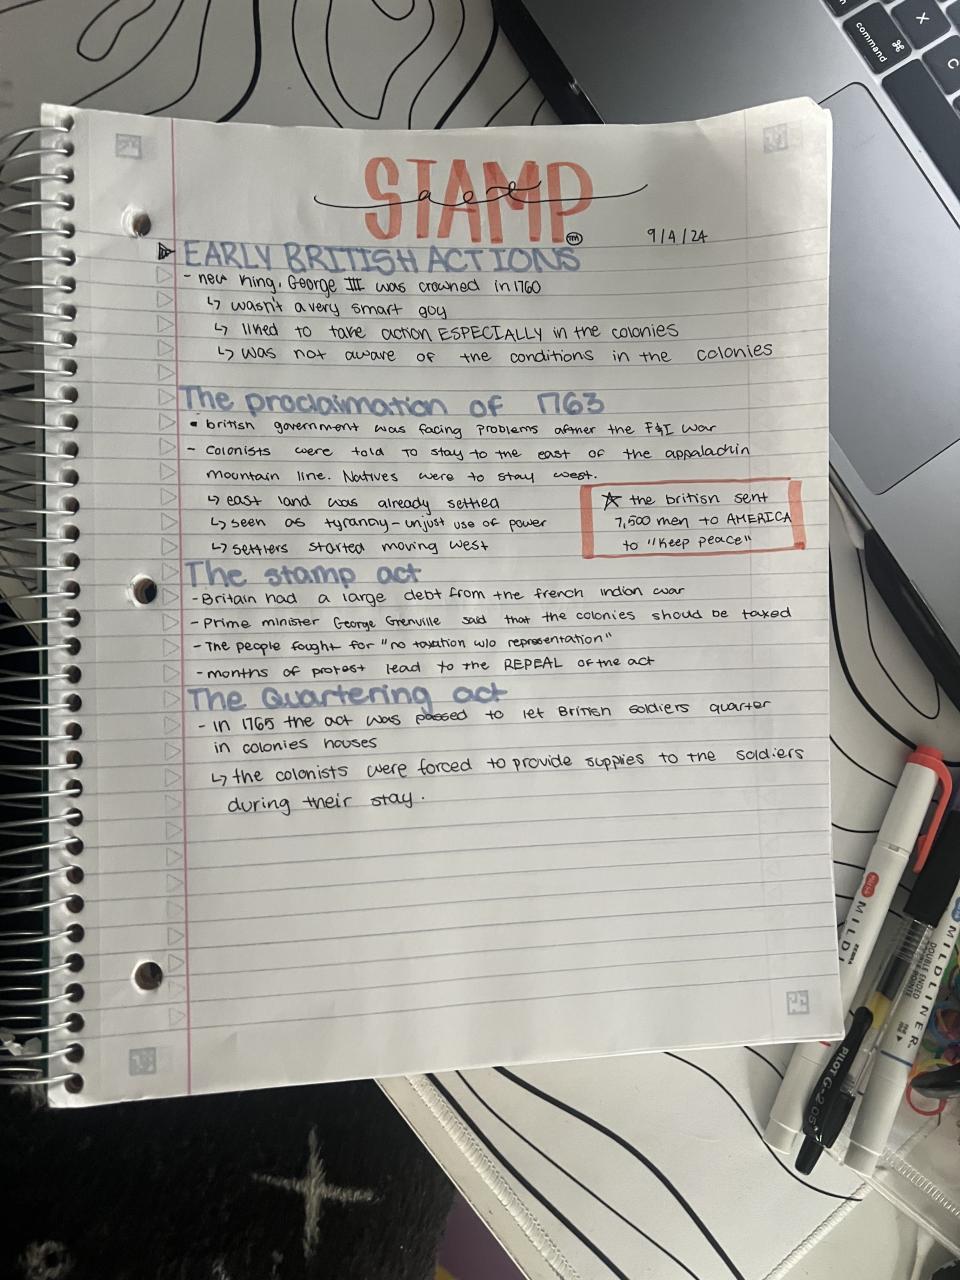 STAMP
act
TM
9/4/24
EARLY BRITISH ACTIONS
- new king, George III was crowned in 1760
↳ wasn't a very smart guy
↳ liked to take action ESPECIALLY in the colonies
↳ was not aware of the conditions in the colonies
The proclaimation of 1763
• british government was facing problems afther the F&I war
- Colonists were told to stay to the east of the appalachin
mountain line. Natives were to stay west.
↳ east land was already settled
↳ seen as tyranny - unjust use of power
↳ settlers started moving west
☆ the british sent
7,500 men to AMERICA
to "keep peace"
The stamp act
- Britain had a large debt from the french indian war
- Prime minister George Grenville said that the colonies should be taxed
- The people fought for "no taxation w/o representation"
- months of protest lead to the REPEAL of the act
The Quartering act
- in 1765 the act was passed to let British soldiers quarter
in colonies houses
↳ the colonists were forced to provide supplies to the soldiers
during their stay.
command
⌘
X
C
MILDLINER
DOUBLE ENDED
ZEBRA
PILOT G-2 05